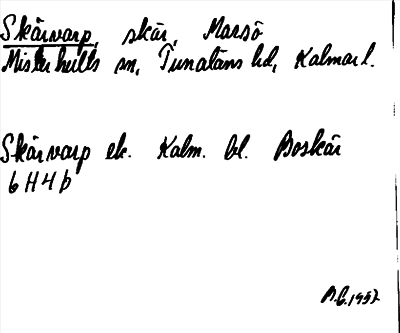 Skärvarp, skär, Marsö
Misterhults sn, Tunaläns hd, Kalmar l.
Skärvarp ek. Kalm. bl. Boskär
6 H 4 b
1957